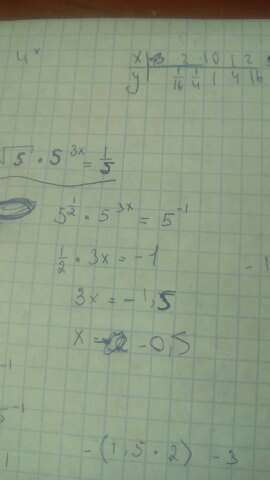 4ˣ
x | 2 | 0 | 1 | 2
y | 1/16 | 1/4 | 1 | 4 | 16
√5 · 5³ˣ = 1/5
5^(1/2) · 5³ˣ = 5⁻¹
1/2 · 3x = -1
3x = -1,5
x = -0,5
-(1,5 · 2) -3